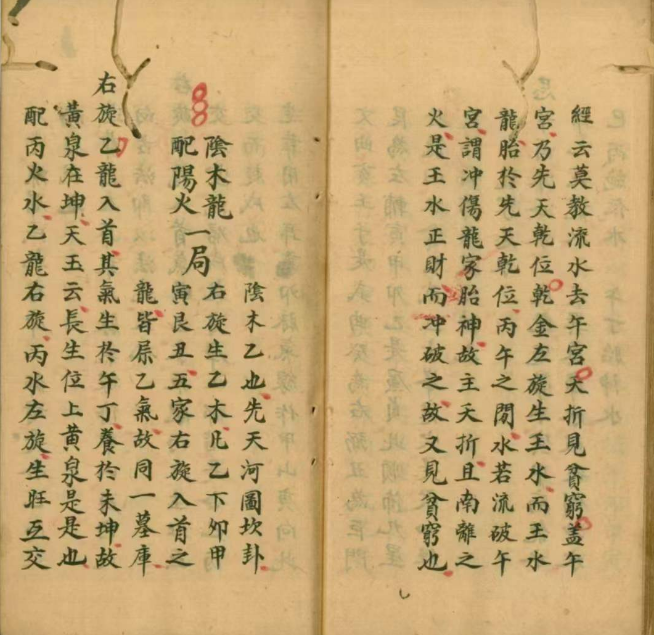 經云莫教流水去午宮夭折見貧窮蓋午
宮乃先天乾位乾金左旋生王水而王水
龍胎於先天乾位丙午之間水若流破午
宮謂冲傷龍家胎神故主夭折且南離之
火是王水正財而冲破之故又見貧窮也
陰木龍一局
配陽火
陰木乙也先天河圖坎卦
右旋生乙木凡乙下夘甲
寅艮丑五家右旋入首之
龍皆屬乙氣故同一墓庫
右旋乙龍入首其氣生於午丁養於未坤故
黃泉在坤天玉云長生位上黃泉是是也
配丙火水乙龍右旋丙水左旋生旺互交